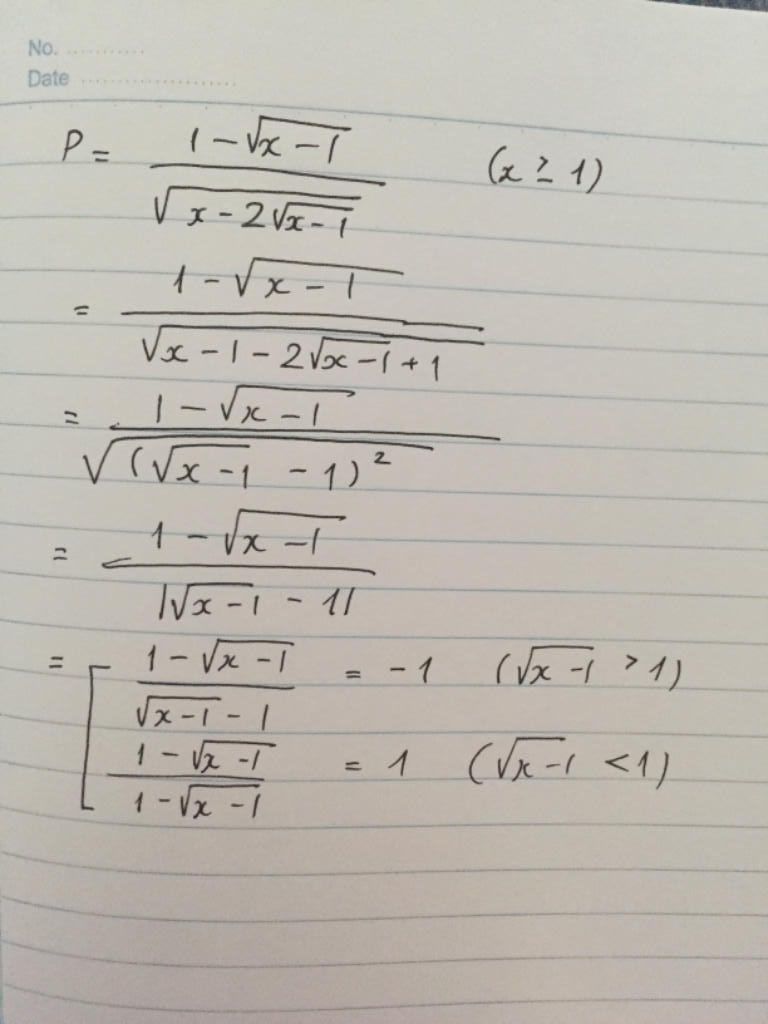 No. ............
Date ........................
P = (1 - √(x - 1)) / √(x - 2√(x - 1)) (x ≥ 1)
= (1 - √(x - 1)) / √(x - 1 - 2√(x - 1) + 1)
= (1 - √(x - 1)) / √((√(x - 1) - 1)²)
= (1 - √(x - 1)) / |√(x - 1) - 1|
= [ (1 - √(x - 1)) / (√(x - 1) - 1) = -1 (√(x - 1) > 1)
(1 - √(x - 1)) / (1 - √(x - 1)) = 1 (√(x - 1) < 1)